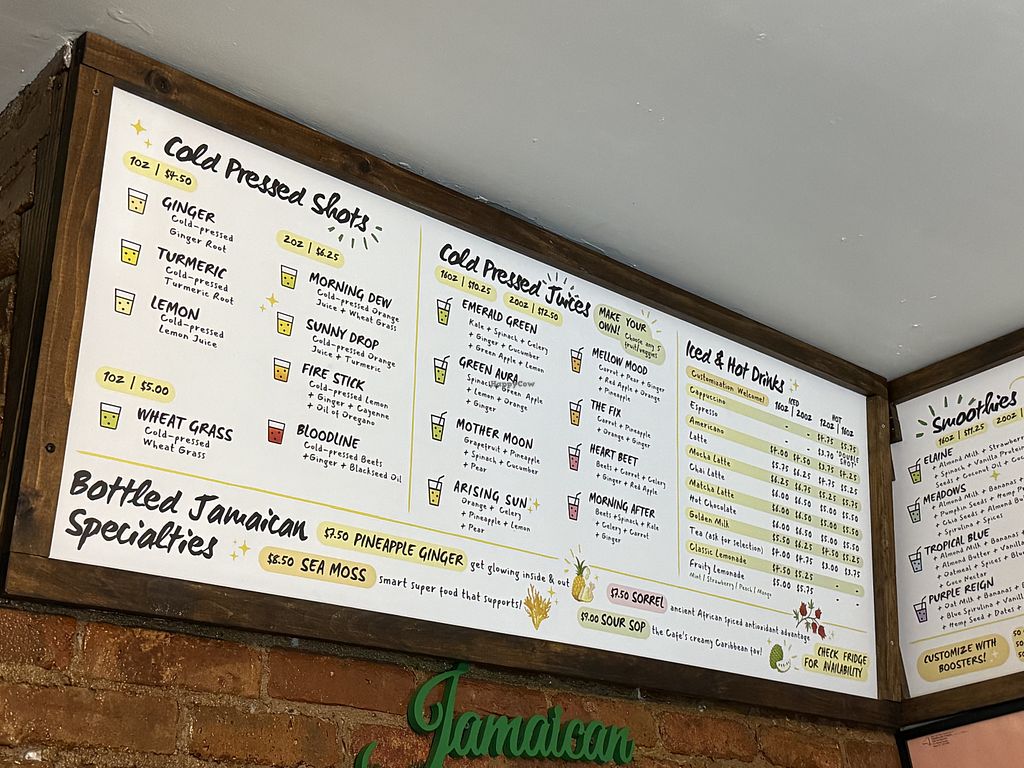 Cold Pressed Shots
1oz | $4.50
GINGER
Cold-pressed
Ginger Root
TURMERIC
Cold-pressed
Turmeric Root
LEMON
Cold-pressed
Lemon Juice
1oz | $5.00
WHEAT GRASS
Cold-pressed
Wheat Grass
2oz | $6.25
MORNING DEW
Cold-pressed Orange
Juice + Wheat Grass
SUNNY DROP
Cold-pressed Orange
Juice + Turmeric
FIRE STICK
Cold-pressed Lemon
+ Ginger + Cayenne
+ Oil of Oregano
BLOODLINE
Cold-pressed Beets
+Ginger + Blackseed Oil
Cold Pressed Juices
16oz | $10.25
20oz | $12.50
MAKE YOUR
OWN! Choose any 5
fruit/veggies
EMERALD GREEN
Kale + Spinach + Celery
+ Ginger + Cucumber
+ Green Apple + Lemon
GREEN AURA
Green Apple
+ Lemon + Orange
+ Ginger
MOTHER MOON
Grapefruit + Pineapple
+ Spinach + Cucumber
+ Pear
ARISING SUN
Orange + Celery
+ Pineapple + Lemon
+ Pear
MELLOW MOOD
Carrot + Pear + Ginger
+ Red Apple + Orange
+ Pineapple
THE FIX
Carrot + Pineapple
+ Orange + Ginger
HEART BEET
Beets + Carrot + Celery
+ Ginger + Red Apple
MORNING AFTER
Beets + Spinach + Kale
+ Celery + Carrot
+ Ginger
HappyCow
Iced & Hot Drinks
Customization Welcome!
ICED HOT
16oz | 20oz 12oz | 16oz
Cappuccino - - $4.75 $5.75
Espresso - - $3.70 "DOUBLE SHOT"
Americano $4.00 $4.50 $3.75 $4.25
Latte $5.75 $6.25 $4.75 $5.25
Mocha Latte $6.25 $6.75 $5.25 $5.75
Chai Latte $6.00 $6.50 $5.00 $5.50
Matcha Latte $6.00 $6.50 $5.00 $5.50
Hot Chocolate $6.00 $6.50 $5.00 $5.50
Golden Milk $5.50 $6.25 $4.50 $5.25
Tea (ask for selection) $4.00 $4.75 $3.00 $3.75
Classic Lemonade $4.50 $5.25 - -
Fruity Lemonade $5.00 $5.75 - -
Mint / Strawberry / Peach / Mango
Bottled Jamaican
Specialties
$7.50 PINEAPPLE GINGER get glowing inside & out
$8.50 SEA MOSS smart super food that supports!
$7.50 SORREL ancient African spiced antioxidant advantage
$9.00 SOUR SOP the Cafe's creamy Caribbean fav!
CHECK FRIDGE
FOR AVAILABILITY
Smoothies
16oz | $9.25
20oz
ELAINE
+ Almond Milk + Strawberr
+ Spinach + Vanilla Protei
Seeds + Coconut Oil + Cu
MEADOWS
+ Almond Milk + Bananas +
+ Pumpkin Seeds + Hemp P
+ Chia Seeds + Almond Bu
+ Spirulina + Spices
TROPICAL BLUE
+ Almond Milk + Bananas
+ Almond Butter + Vanill
+ Oatmeal + Spices + Ble
+ Coco Nectar
PURPLE REIGN
+ Oat Milk + Bananas +
+ Blue Spirulina + Vanill
+ Hemp Seed + Dates +
CUSTOMIZE WITH
BOOSTERS!
Jamaican